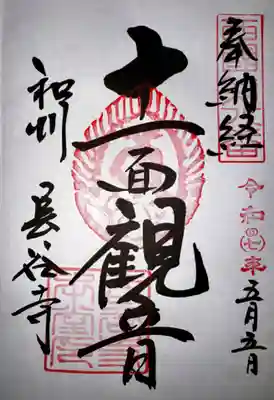 奉納経
令和七年
五月五日
十一面観音
和州
長谷寺